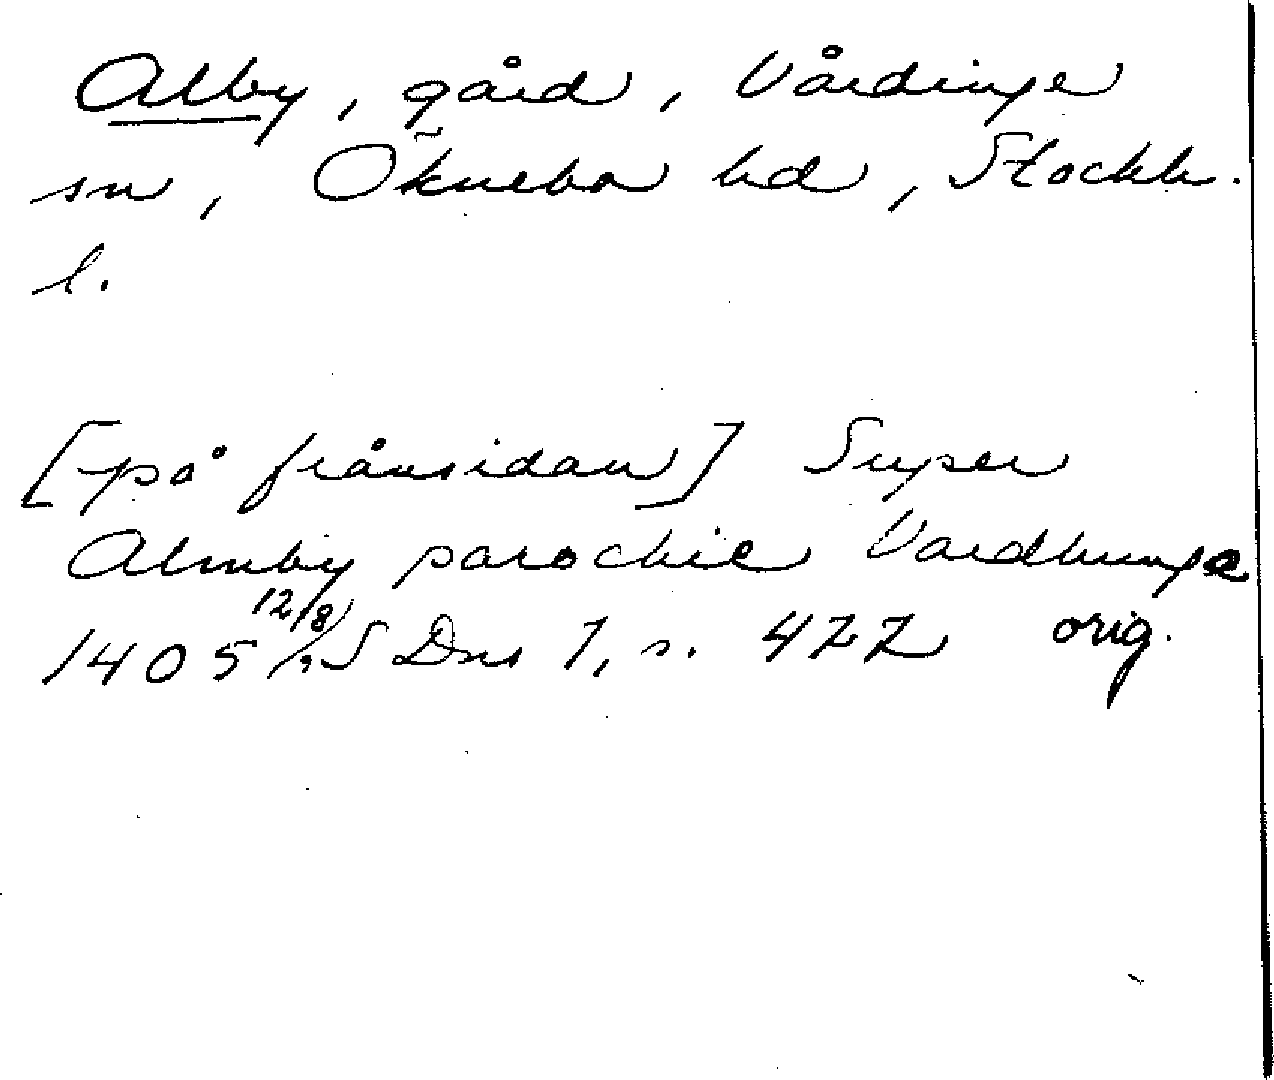 Alby, gård, Vårdinge
sn, Öknebo hd, Stockh.
l.
[på frånsidan] Super
Almby parochie Vardhunge
1405 12/8 SDns 1, s. 477 orig.